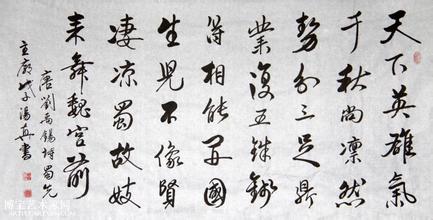 天下英雄氣
千秋尚凛然
勢分三足鼎
業復五銖錢
得相能開國
生兒不像賢
淒涼蜀故妓
耒舞魏宮前
唐劉禹錫詩蜀先
主廟戊子湯真書
博宝艺术家网